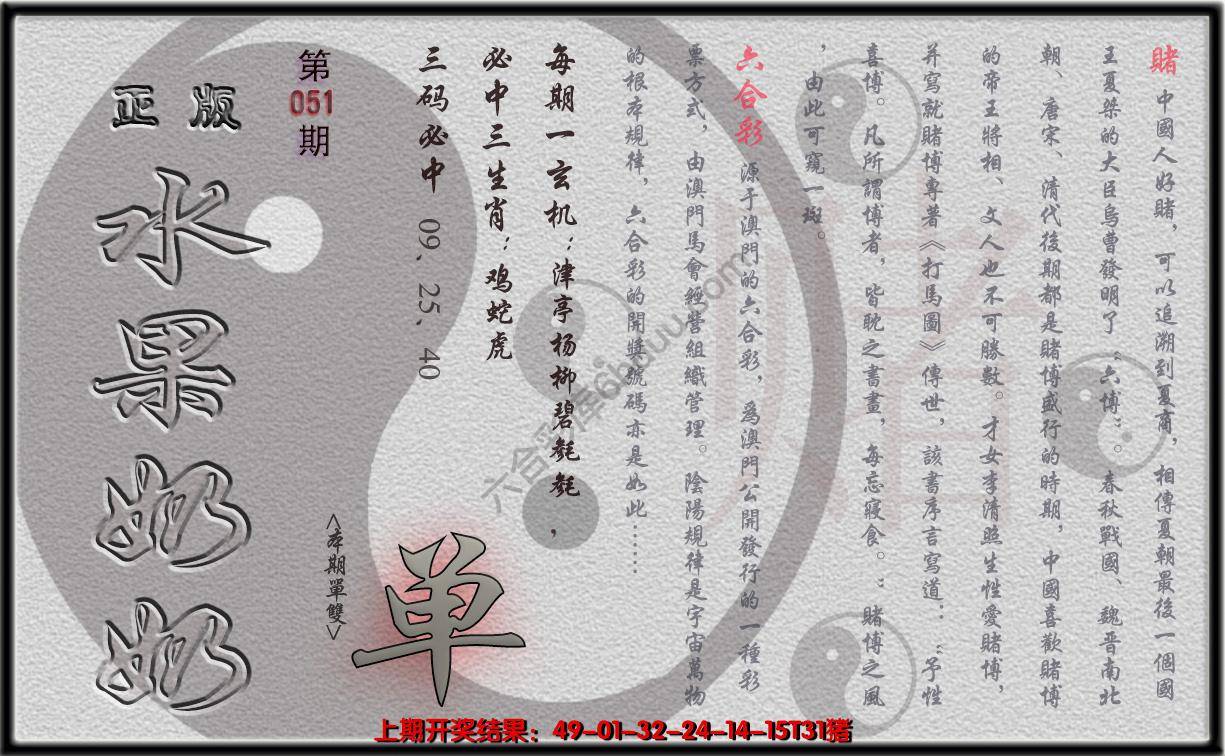 賭 中國人好賭，可以追溯到夏商，相傳夏朝最後一個國
王夏桀的大臣烏曹發明了“六博”。春秋戰國、魏晋南北
朝、唐宋、清代後期都是賭博盛行的時期，中國喜歡賭博
的帝王將相、文人也不可勝數。才女李清照生性愛賭博，
并寫就賭博專著《打馬圖》傳世，該書序言寫道：“予性
喜博。凡所謂博者，皆耽之書畫，每忘寢食。”賭博之風
，由此可窺一斑。
六合彩 源于澳門的六合彩，爲澳門公開發行的一種彩
票方式，由澳門馬會經營組織管理。陰陽規律是宇宙萬物
的根本規律，六合彩的開獎號碼亦是如此……
每期一玄机：津亭杨柳碧毵毵，
必中三生肖：鸡蛇虎
三码必中 09、25、40
第051期
正版
水果奶奶
<本期單雙>
单
賭
六合彩库6hduu.com
上期开奖结果：49-01-32-24-14-15T31猪